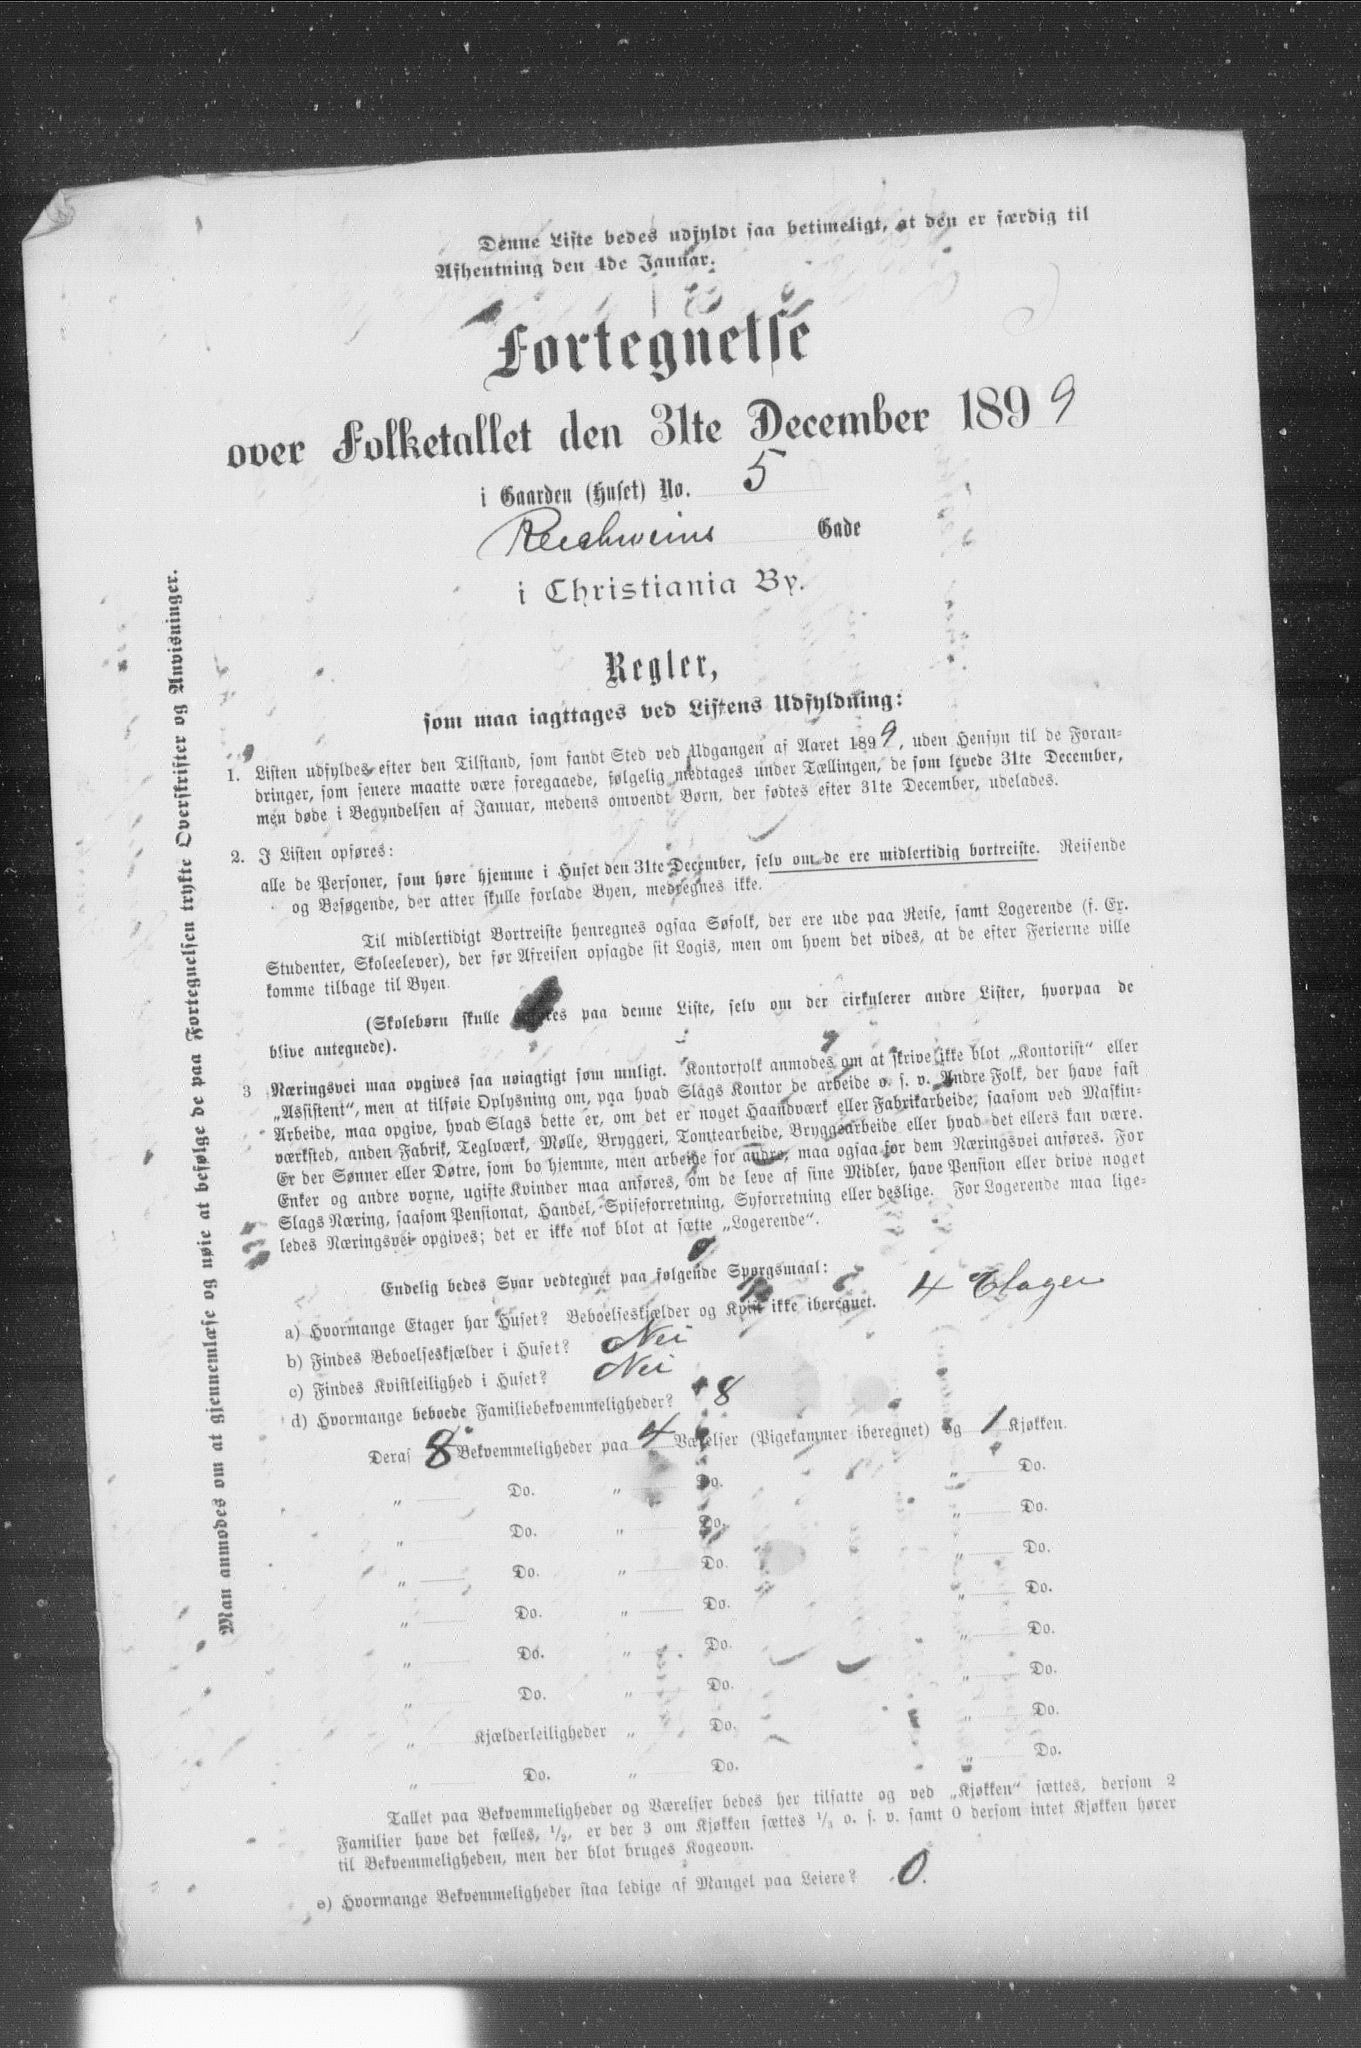 Denne Liste bedes udfyldt saa betimeligt, at den er færdig til
Afhentning den 4de Januar.
Fortegnelse
over Folketallet den 31te December 1899
i Gaarden (Huset) No. 5
Reichweins Gade
i Christiania By.
Regler,
som maa iagttages ved Listens Udfyldning:
1. Listen udfyldes efter den Tilstand, som fandt Sted ved Udgangen af Aaret 1899, uden Hensyn til de Foran-
dringer, som senere maatte være foregaaede, følgelig medtages under Tællingen, de som levede 31te December,
men døde i Begyndelsen af Januar, medens omvendt Børn, der fødtes efter 31te December, udelades.
2. I Listen opføres:
alle de Personer, som høre hjemme i Huset den 31te December, selv om de ere midlertidig bortreiste. Reisende
og Besøgende, der atter skulle forlade Byen, medregnes ikke.
Til midlertidigt Bortreiste henregnes ogsaa Søfolk, der ere ude paa Reise, samt Logerende (f. Ex.
Studenter, Skoleelever), der før Afreisen opsagde sit Logis, men om hvem det vides, at de efter Ferierne ville
komme tilbage til Byen.
(Skolebørn skulle opføres paa denne Liste, selv om der cirkulerer andre Lister, hvorpaa de
blive antegnede).
3 Næringsvei maa opgives saa nøiagtigt som muligt. Kontorfolk anmodes om at skrive ikke blot „Kontorist“ eller
„Assistent“, men at tilføie Oplysning om, paa hvad Slags Kontor de arbeide o. s. v. Andre Folk, der have fast
Arbeide, maa opgive, hvad Slags dette er, om det er noget Haandværk eller Fabrikarbeide, saasom ved Maskin-
værksted, anden Fabrik, Teglværk, Mølle, Bryggeri, Tomtearbeide, Bryggearbeide eller hvad det ellers kan være.
Er der Sønner eller Døtre, som bo hjemme, men arbeide for andre, maa ogsaa for dem Næringsvei anføres. For
Enker og andre voxne, ugifte Kvinder maa anføres, om de leve af sine Midler, have Pension eller drive noget
Slags Næring, saasom Pensionat, Handel, Spiseforretning, Syforretning eller deslige. For Logerende maa lige-
ledes Næringsvei opgives; det er ikke nok blot at sætte „Logerende“.
Endelig bedes Svar vedtegnet paa følgende Spørgsmaal:
a) Hvormange Etager har Huset? Beboelseskjælder og Kvist ikke iberegnet. 4 Etager
b) Findes Beboelseskjælder i Huset? Nei
c) Findes Kvistleilighed i Huset? Nei
d) Hvormange beboede Familiebekvemmeligheder? 8
Deraf 8 Bekvemmeligheder paa 4 Værelser (Pigekammer iberegnet) og 1 Kjøkken.
„ Do. „ Do. „ Do.
„ Do. „ Do. „ Do.
„ Do. „ Do. „ Do.
„ Do. „ Do. „ Do.
„ Do. „ Do. „ Do.
„ Do. „ Do. „ Do.
„ Kjælderleiligheder „ Do. „ Do.
„ Do. „ Do. „ Do.
Tallet paa Bekvemmeligheder og Værelser bedes her tilsatte og ved „Kjøkken“ sættes, dersom 2
Familier have det fælles, 1/2, er der 3 om Kjøkken sættes 1/3 o. s. v. samt 0 dersom intet Kjøkken hører
til Bekvemmeligheden, men der blot bruges Kogeovn.
e) Hvormange Bekvemmeligheder staa ledige af Mangel paa Leiere? 0.
Man anmodes om at gjennemlæse og nøie at befølge de paa Fortegnelsen trykte Overskrifter og Anvisninger.